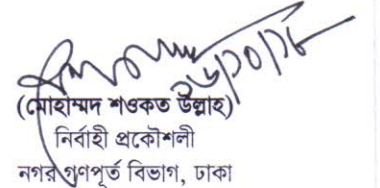 ২৬/১০/১৮
(মোহাম্মদ শওকত উল্লাহ)
নির্বাহী প্রকৌশলী
নগর গণপূর্ত বিভাগ, ঢাকা